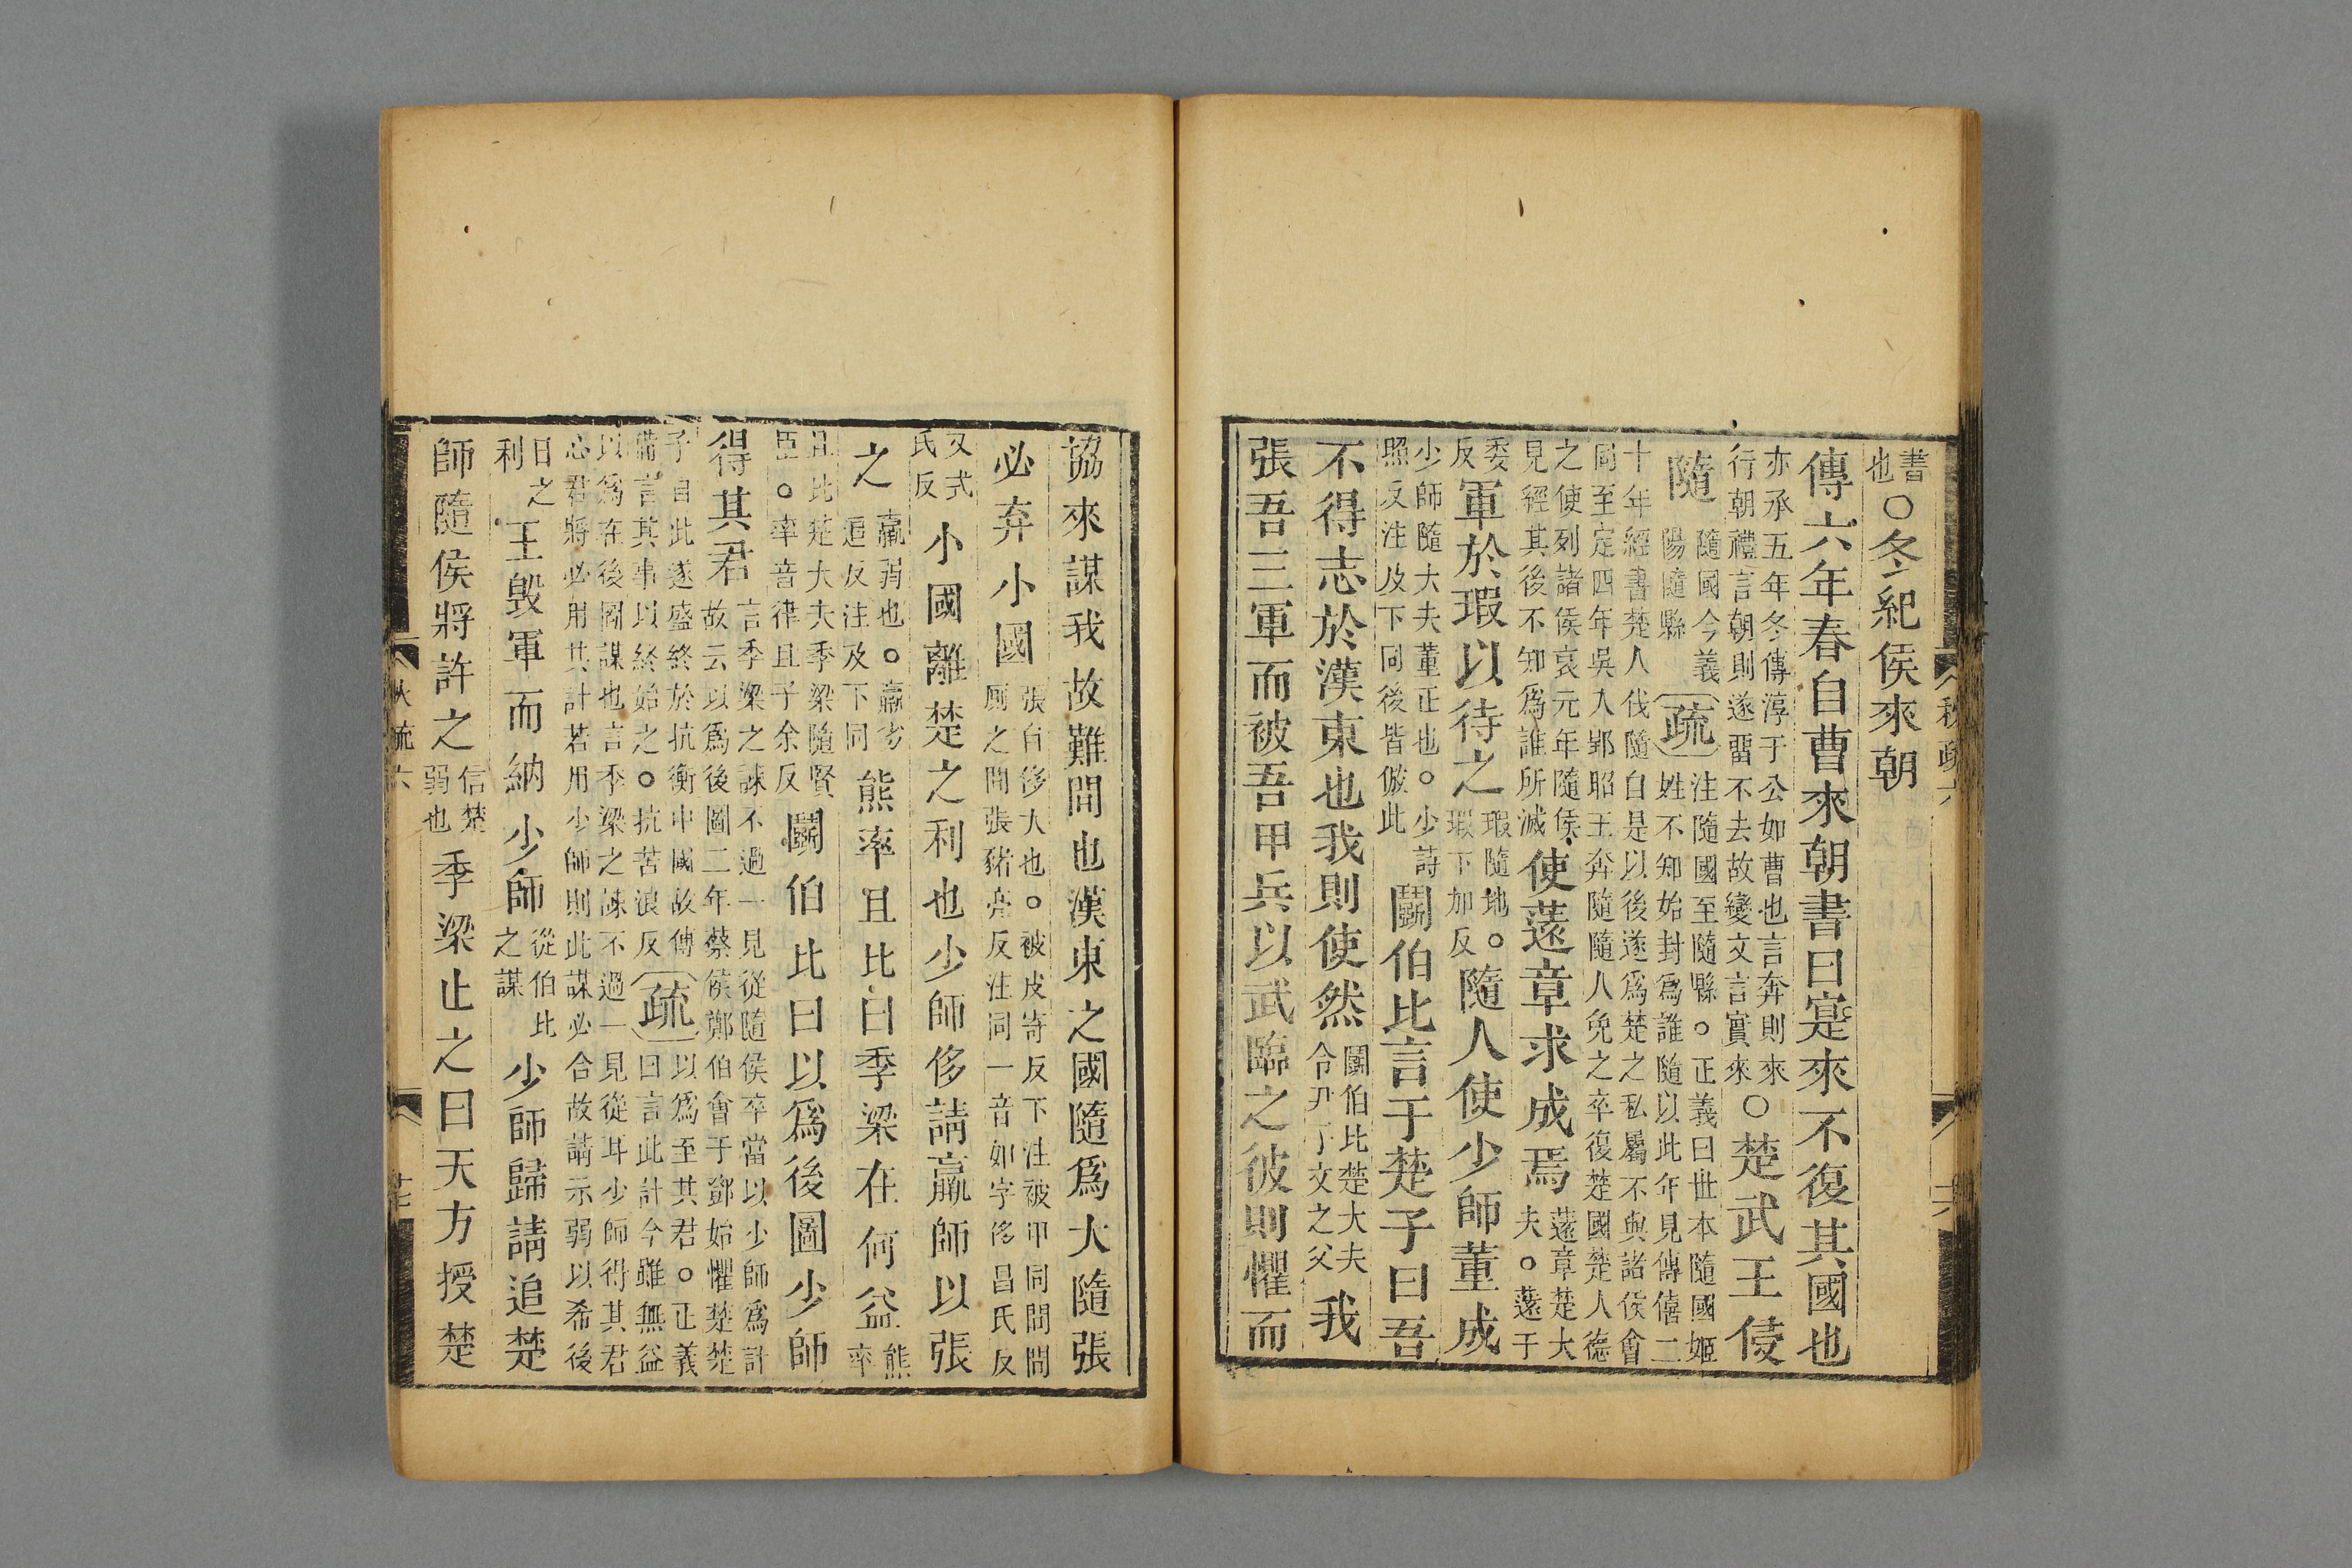 書也○冬紀侯來朝
傳六年春自曹來朝書曰寔來不復其國也
亦承五年冬傳淳于公如曹也言奔則來
行朝禮言朝則遂畱不去故變文言實來○楚武王侵
隨
隨國今義
陽隨縣
疏
注隨國至隨縣。正義曰世本隨國姬
姓不知始封爲誰隨以此年見傳僖二
十年經書楚人伐隨自是以後遂爲楚之私屬不與諸侯會
同至定四年吳入郢昭王奔隨隨人免之卒復楚國楚人德
之使列諸侯哀元年隨侯
見經其後不知爲誰所滅
使薳章求成焉
薳章楚大
夫。薳于
委
反
軍於瑕以待之
瑕隨地。
瑕下加反
隨人使少師董成
少師隨大夫董正也。少詩
照反注及下同後皆倣此
鬭伯比言于楚子曰吾
不得志於漢東也我則使然
鬭伯比楚大夫
令尹子文之父
我
張吾三軍而被吾甲兵以武臨之彼則懼而
協來謀我故難間也漢東之國隨爲大隨張
必弃小國
張自侈大也。被皮寄反下注被甲同間間
厠之間張豬亮反注同一音如字侈昌氏反
又式
氏反
小國離楚之利也少師侈請羸師以張
之
羸弱也。羸劣
追反注及下同
熊率且比曰季梁在何益
熊
率
且比楚大夫季梁隨賢
臣。率音律且子余反
鬭伯比曰以爲後圖少師
得其君
言季梁之諫不過一見從隨侯卒當以少師爲計
故云以爲後圖二年蔡侯鄭伯會于鄧始懼楚楚
子自此遂盛終於抗衡中國故傳
備言其事以終始之。抗苦浪反
疏
以爲至其君。正義
曰言此計今雖無益
以爲在後圖謀也言季梁之諫不過一見從耳少師得其君
心君將必用其計若用少師則此謀必合故請示弱以希後
日之
利
王毁軍而納少師
從伯比
之謀
少師歸請追楚
師隨侯將許之
信楚
弱也
季梁止之曰天方授楚